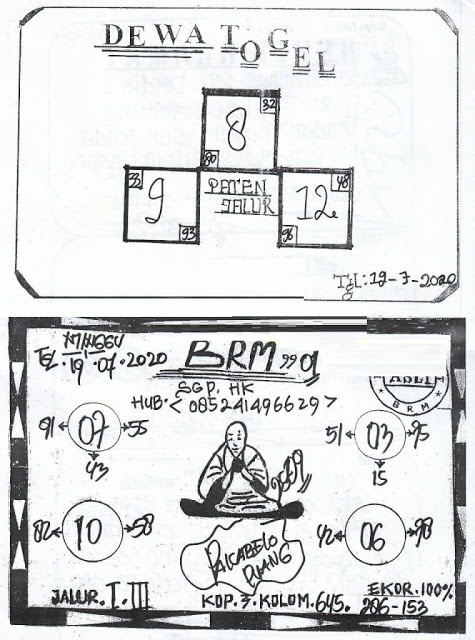 DEWA TOGEL
32
8
80
33
9
93
PATEN
JALUR
48
12
96
Tgl: 19-7-2020
MINGGU
TGL. 19.07.2020
BRM 99 9
SGP. HK
HUB. < 085241496629 >
ASLI
BRM
91 07 55
43
51 03 95
15
82 10 58
42 06 98
PIANG
JALUR. I. III
KOP. 3. KOLOM. 645.
EKOR. 100%
286-153